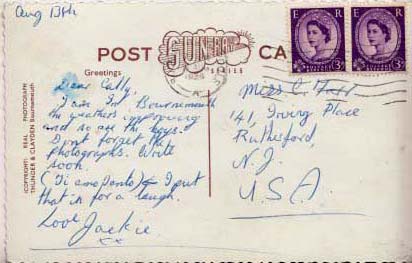 Aug 13th
POST CA
SUNRAY
SERIES
Greetings
E R
3D
E R
3D
(COPYRIGHT) REAL PHOTOGRAPH
THUNDER & CLAYDEN Bournemouth
Dear Cally,
I am In Bournemouth
the weathers improving
and so are the boys.
Dont forget the
photographs. Write
soon.
(Ti amo tanto) I put
that in for a laugh.
Love Jackie.
xx
Miss C.
141, Irving Place
Rutherford,
N.J.
U.S.A.